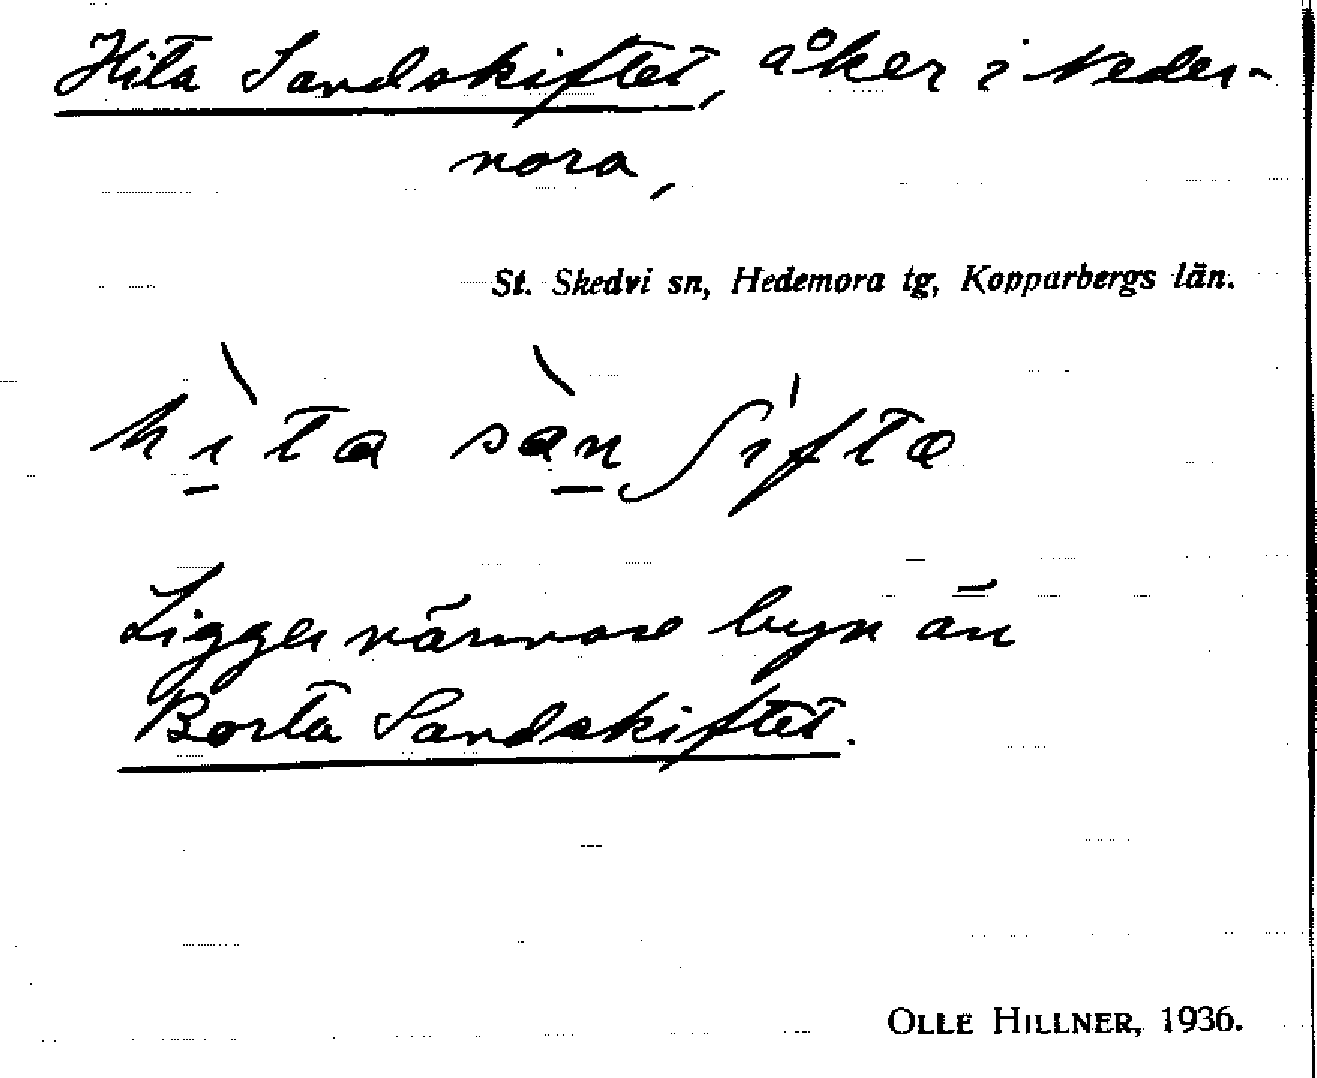 Hita Sandskiftet, åker i Neder-
nora,
St. Skedvi sn, Hedemora tg, Kopparbergs län.
hìta sàn ʃifta
Ligger närmare byn än
Borta Sandskiftet.
OLLE HILLNER, 1936.